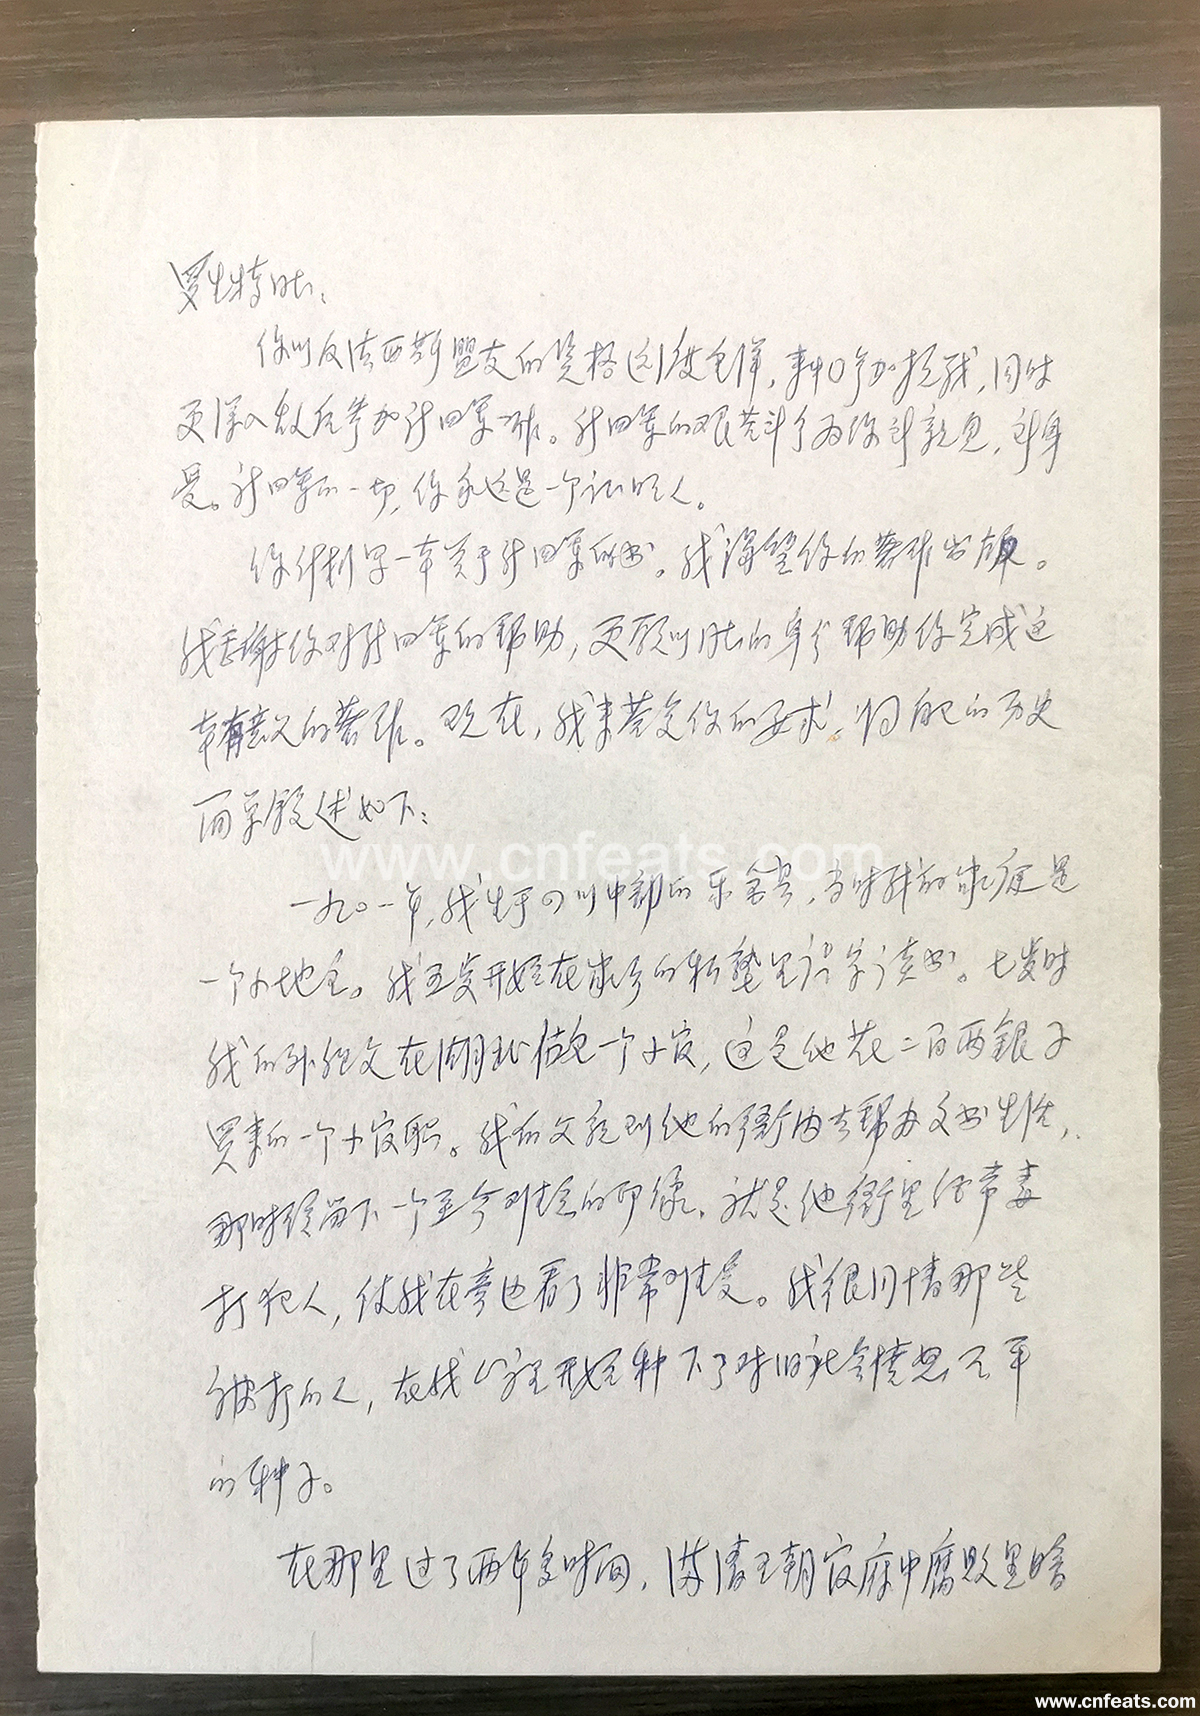 罗生特同志：
你以反法西斯盟友的资格远渡重洋，来中国参加抗战，同时
更深入敌后参加新四军工作。新四军的艰苦斗争为你所亲见，所身
受。新四军的一切，你永远是一个证明人。
你计划写一本关于新四军的书。我渴望你的著作出版。
我感谢你对新四军的帮助，更愿以同志的身份帮助你完成这
本有意义的著作。现在，我来答复你的要求，将自己的历史
简单叙述如下：
www.cnfeats.com
一九〇一年，我生于四川中部的乐至县，当时我的家庭是
一个小地主。我五岁开始在家乡的私塾里识字读书。七岁时
我的外祖父在湖北做了一个小官，这是他花二百两银子
买来的一个小官职。我的父亲到他的衙内去帮办文书生活，
那时得留下一个至今难忘的印象，就是他衙里经常毒
打犯人，使我在旁边看了非常难受。我很同情那些
被打的人，在我心里开始种下了对旧社会愤怒不平
的种子。
在那里过了两年多时间，满清王朝官府中腐败黑暗
www.cnfeats.com